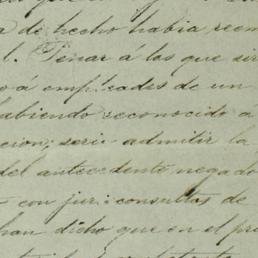 a de hecho habia reem
l. Penar á los que sir
o á empleados de un
habiendo reconocido a
cion; seria admitir la
del antecedente negado
con jurisconsultos de
han dicho que en el pri